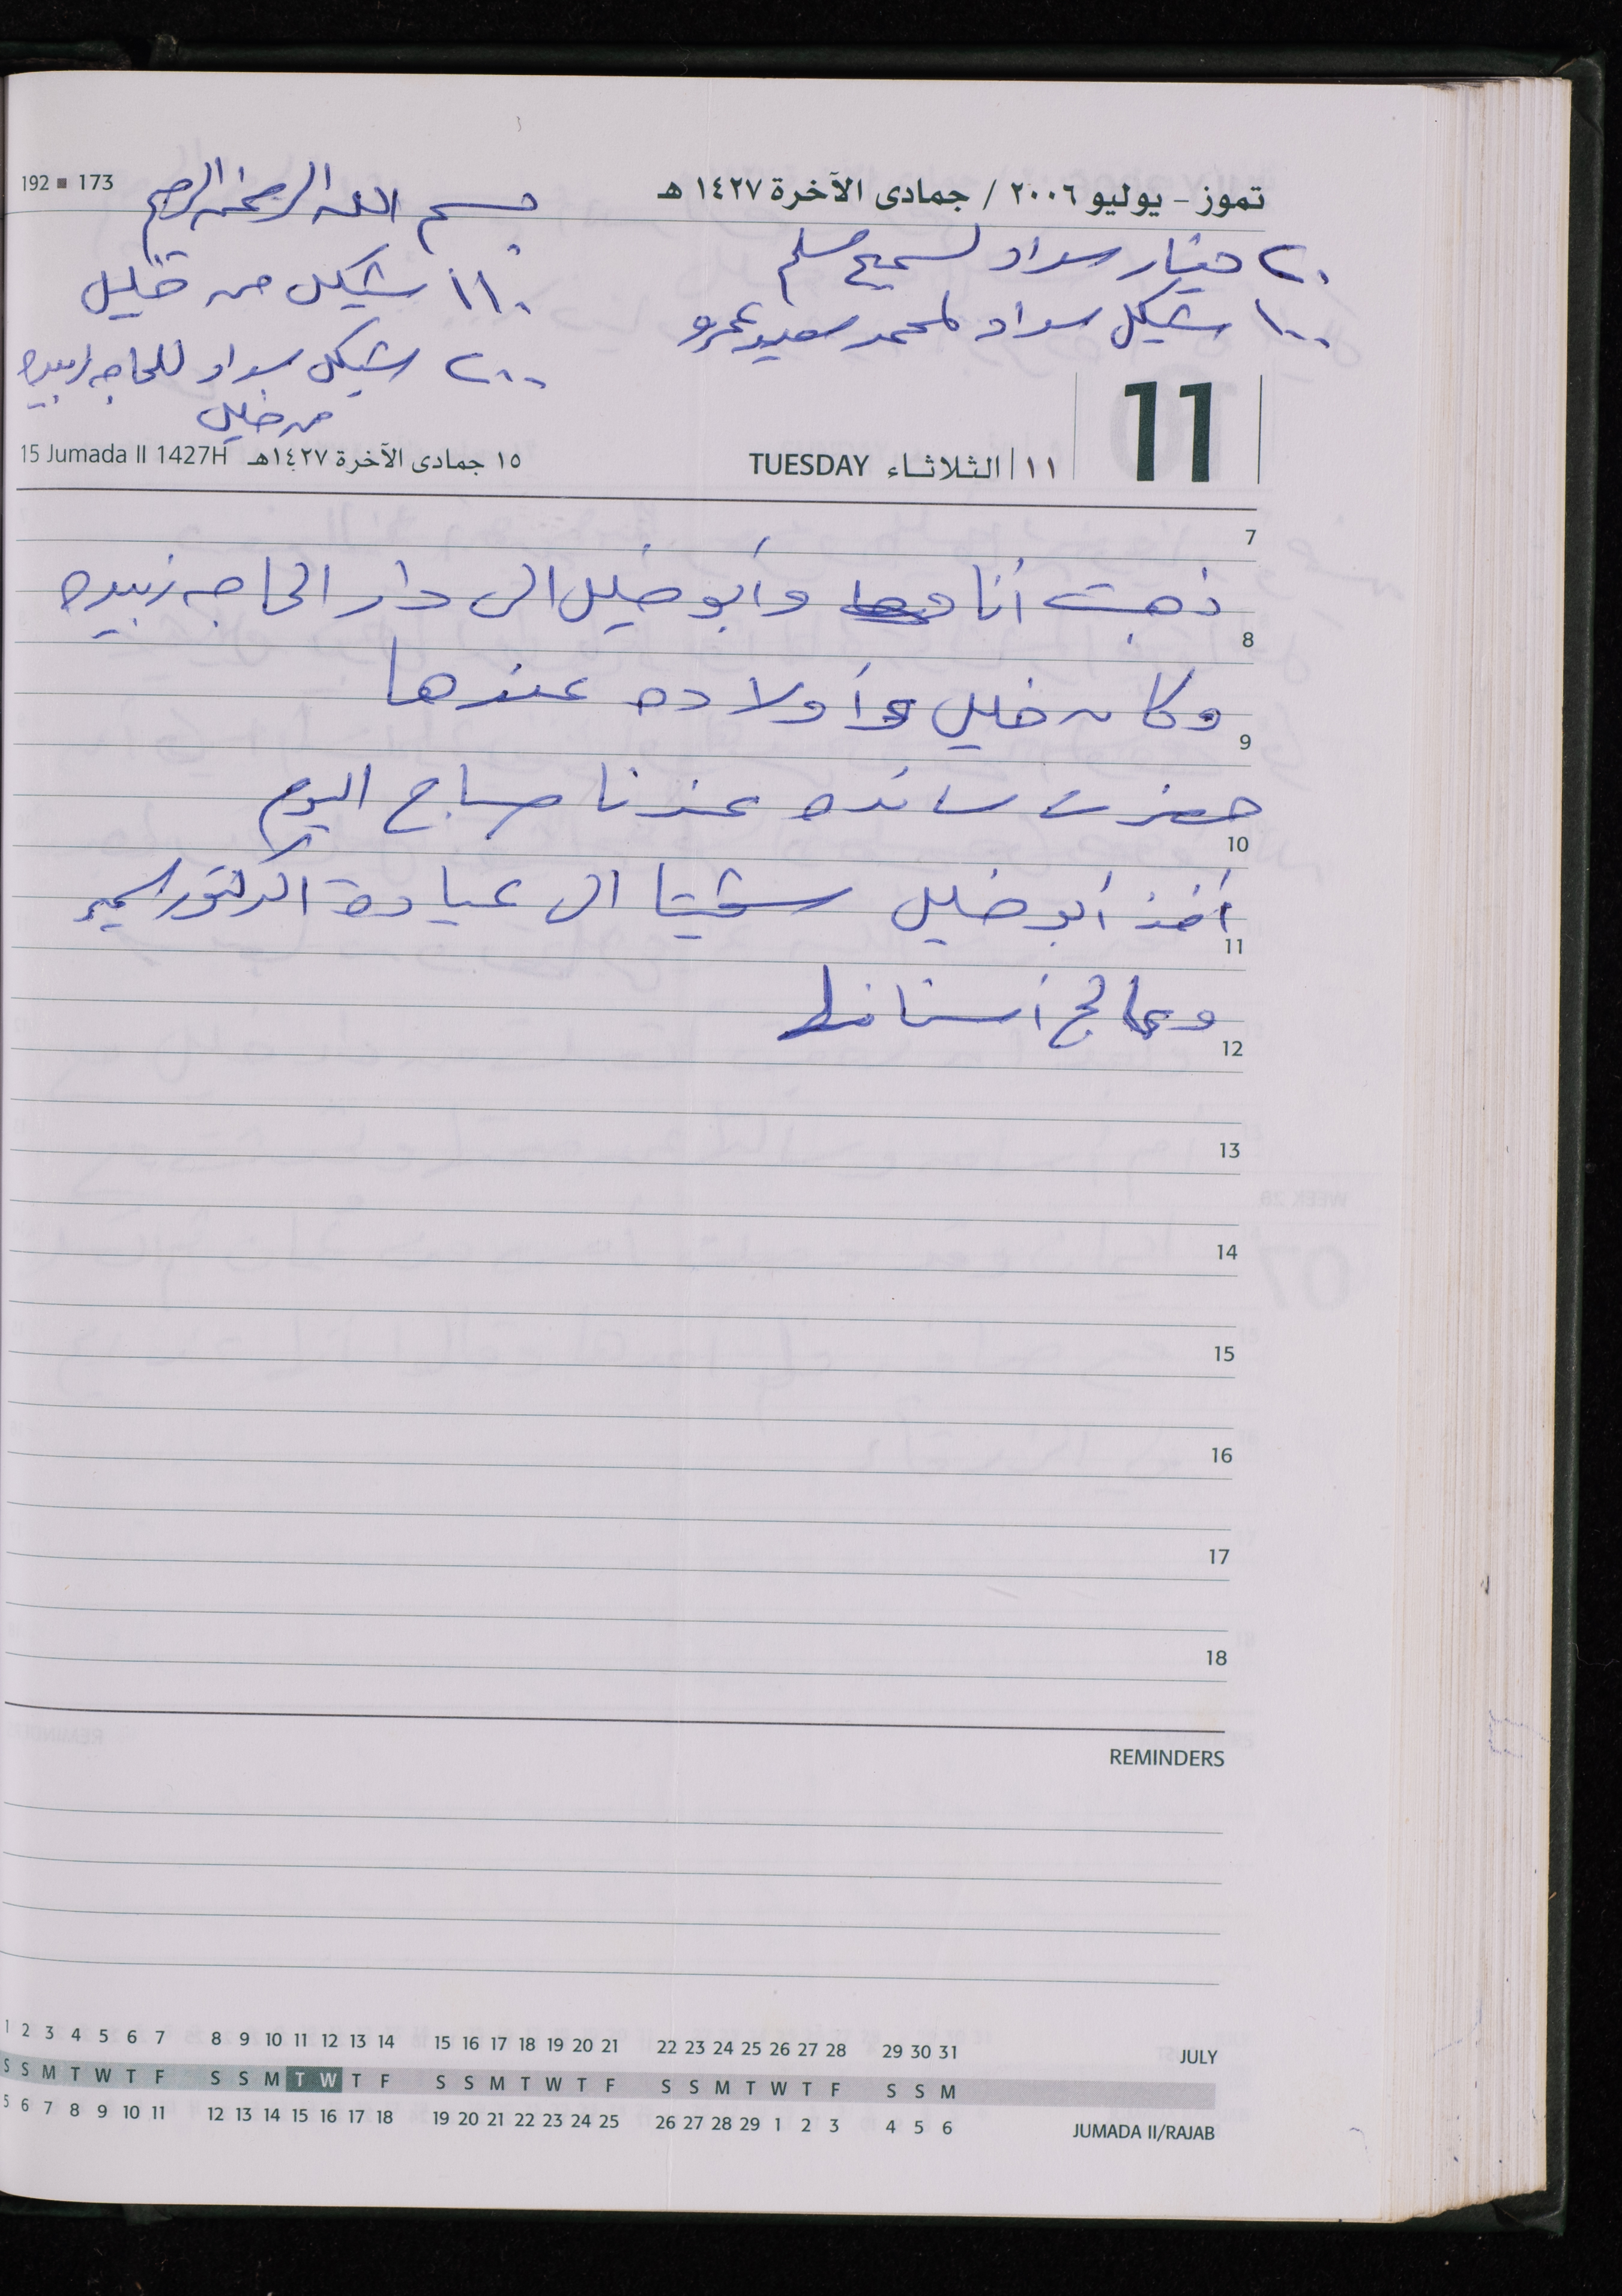 192 ■ 173
تموز - يوليو ٢٠٠٦ / جمادى الآخرة ١٤٢٧ هـ
بسم الله الرحمن الرحيم
٢٠ دينار سداد لسميح مسلم
١١٠ شيكل من خليل
١٠٠ شيكل سداد لمحمد سعيد عمرو
٢٠٠ شيكل سداد للحاجه زبيده
من خليل
11
١١ الثلاثاء TUESDAY
١٥ جمادى الآخرة ١٤٢٧هـ 15 Jumada II 1427H
7
ذهبت أنا وأبو خليل الى دار الحاجه زبيده
8
وكان خليل وأولاده عندها
9
حضرت سائده عندنا صباح اليوم
10
أخذ أبو خليل الى عيادة الدكتور سمير
11
وعالج أسنانها
12
13
14
15
16
17
18
REMINDERS
1 2 3 4 5 6 7 8 9 10 11 12 13 14 15 16 17 18 19 20 21 22 23 24 25 26 27 28 29 30 31 JULY
S S M T W T F S S M T W T F S S M T W T F S S M T W T F S S M
5 6 7 8 9 10 11 12 13 14 15 16 17 18 19 20 21 22 23 24 25 26 27 28 29 1 2 3 4 5 6 JUMADA II/RAJAB